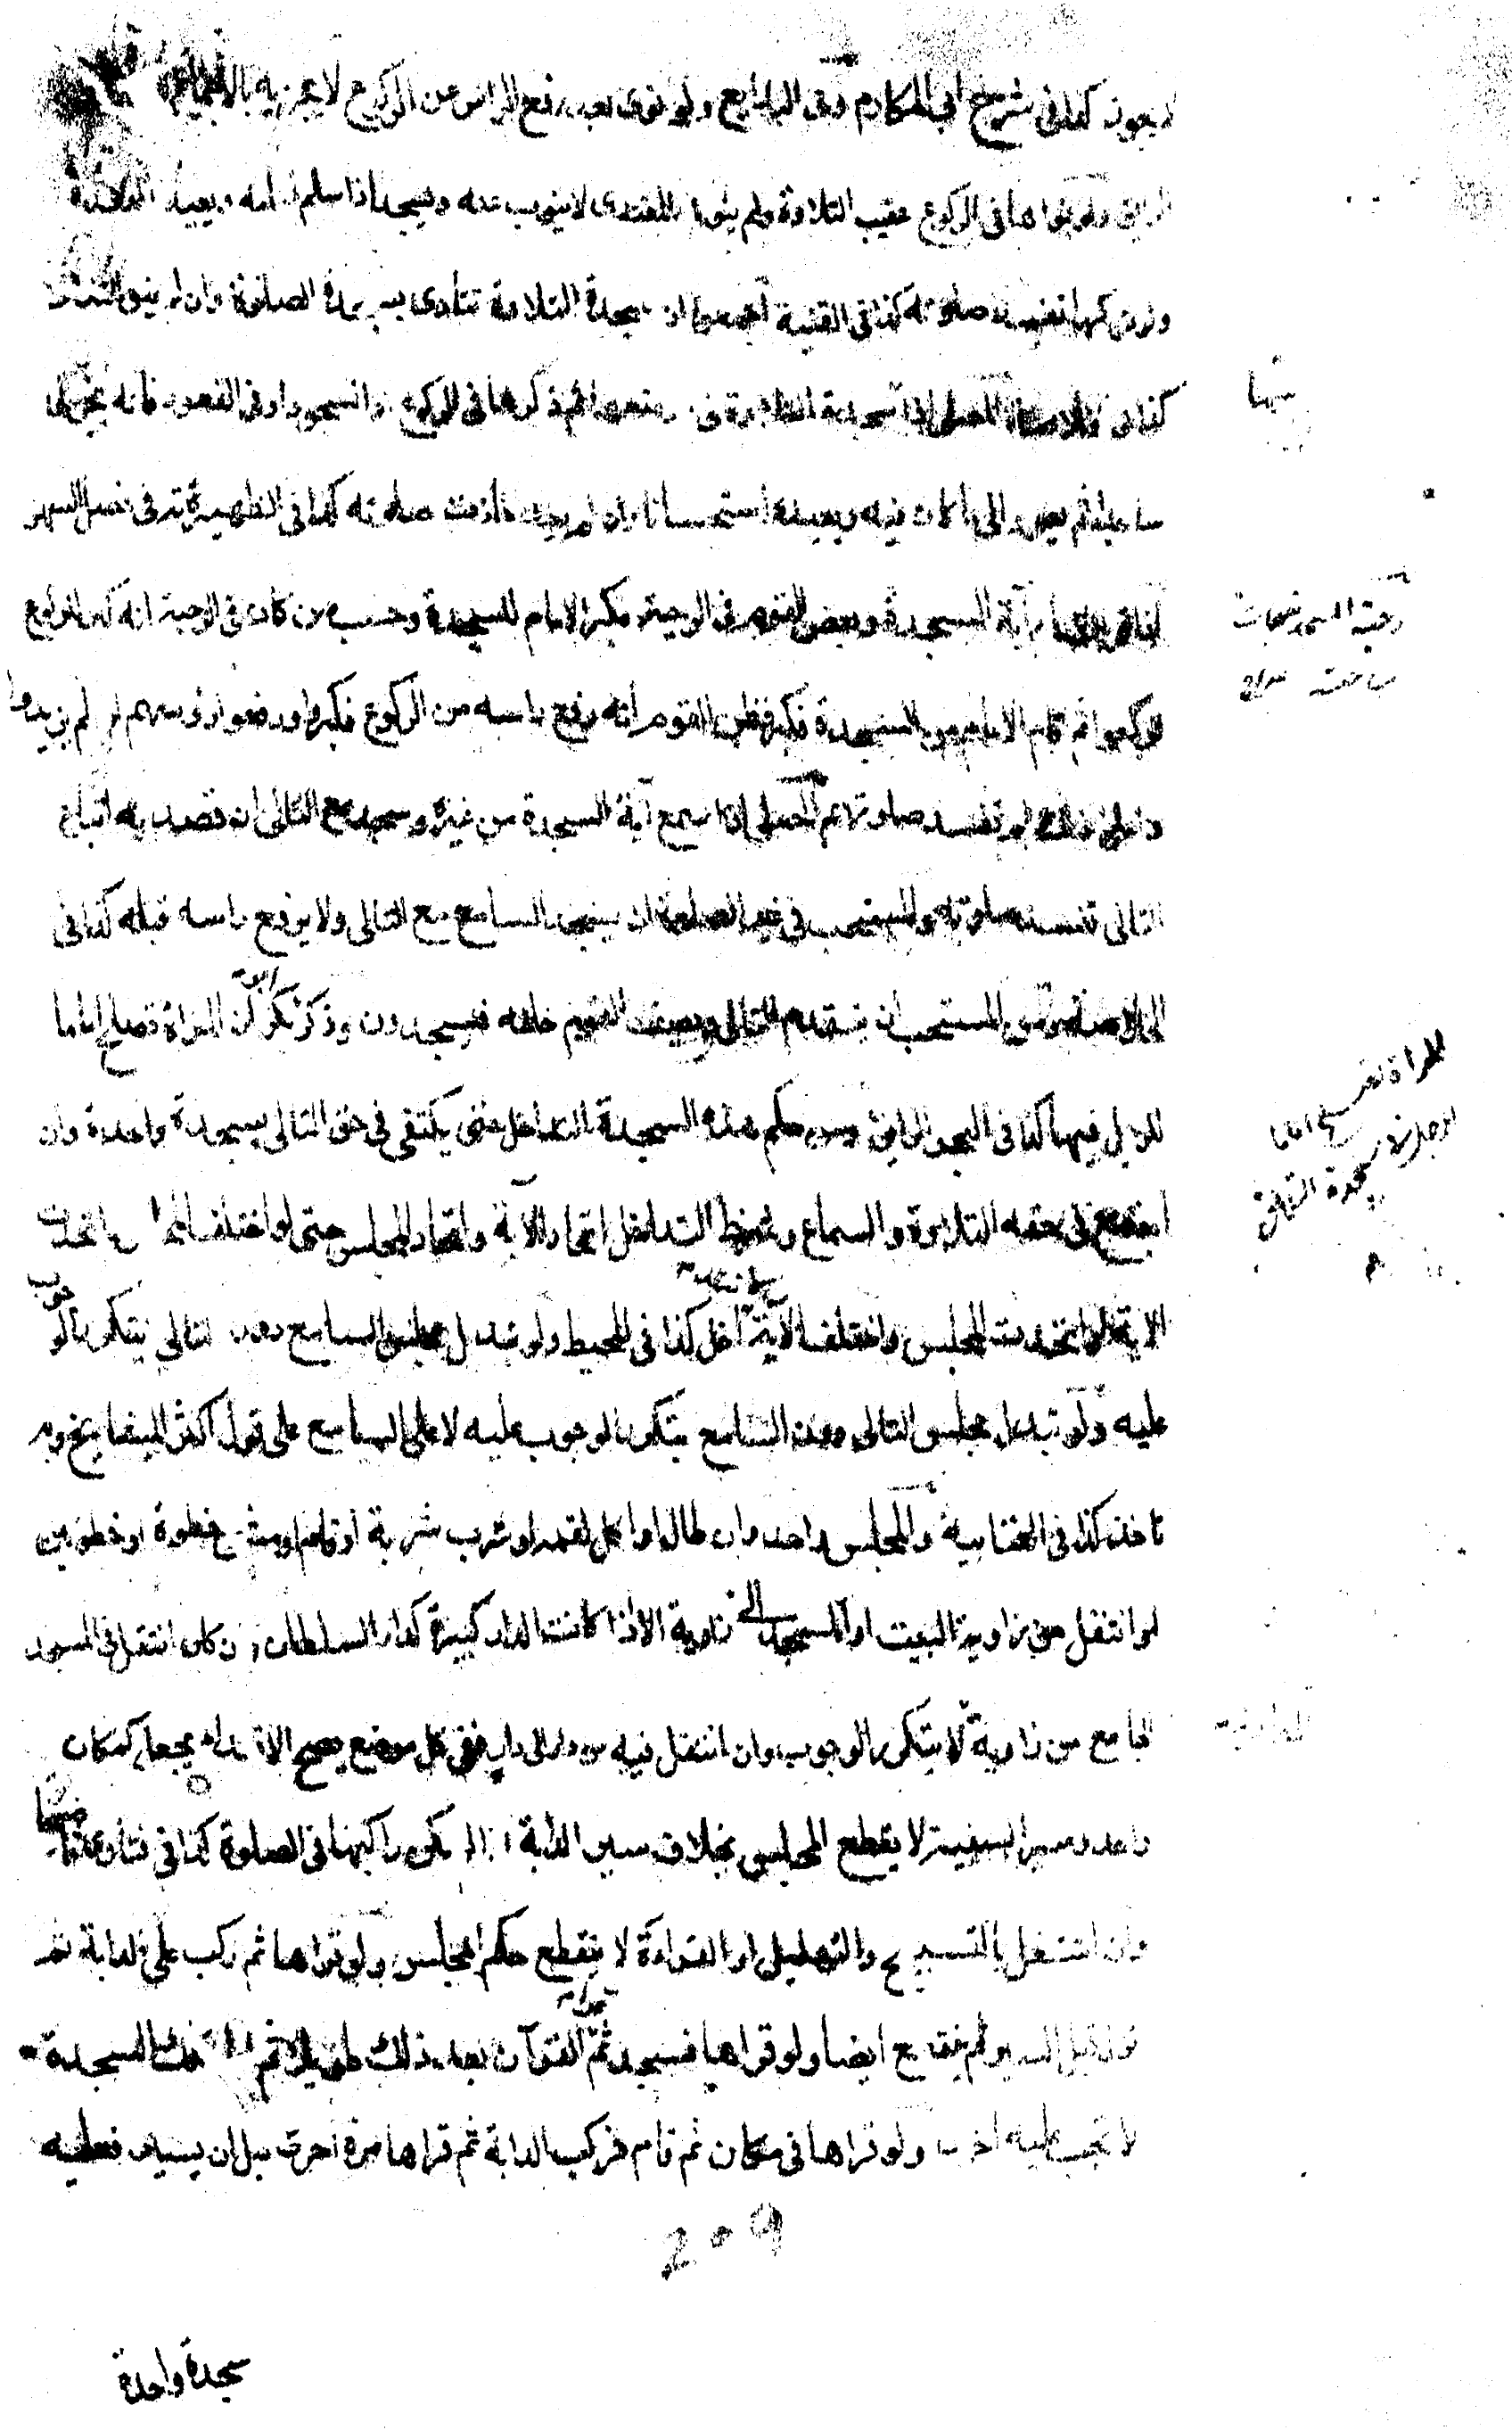 يجوز كذا في شرح ابي المكارم وفي البدايع ولو نوى بعد رفع الراس من الركوع لا يجزيه بالاجماع
الرايق ولو نواها في الركوع عقيب التلاوة ولم ينوها المقتدى لا ينوب عنه ويسجد اذا سلم امامه ويعيد القعدة
ولو تركها تفسد صلوته كذا في القنية اجمعوا ان سجدة التلاوة تتأدى بسجدة الصلوة وان لم ينو التلاوة
كذا في الخلاصة المصلي اذا نسي سجدة التلاوة في موضعها ثم ذكرها في الركوع او السجود او في القعود فانه يخر لها
ساجدا ثم يعود الى ما كان فيه ويعيده استحسانا وان لم يعد جازت صلوته كذا في الظهيرية في فصل السهو
اية السجدة وبعض القوم في الرحبة فكبر الامام للسجدة وحسب من كان في الرحبة انه كبر للركوع
فركعوا ثم قام الامام من السجدة فكبر فظن القوم انه رفع راسه من الركوع فكبروا ورفعوا رؤسهم لو لم يزيدوا
على ذلك لم تفسد صلوتهم المصلي اذا سمع آية السجدة من غيره وسجد مع التالي ان قصد به اتباع
التالي تفسد صلوته والمستحب في غير الصلوة ان يسجد السامع مع التالي ولا يرفع راسه قبله كذا في
الخلاصة ومن المستحب ان يتقدم التالي ويصف القوم خلفه فيسجدون وذكر ابو بكر ان المراة تصلح اماما
للرجل فيها كذا في البحر الرايق ومن حكم هذه السجدة التداخل حتى يكتفى في حق التالي بسجدة واحدة وان
اجتمع في حقه التلاوة والسماع وشرط التداخل اتحاد الآية واتحاد المجلس حتى لو اختلف المجلس واتحدت
الاية او اتحد المجلس واختلفت الآية لا تتداخل كذا في المحيط ولو تبدل مجلس السامع دون التالي يتكرر الوجوب
عليه ولو تبدل مجلس التالي دون السامع يتكرر الوجوب عليه لا على السامع على قول اكثر المشايخ وبه
ناخذ كذا في العتابية والمجلس واحد وان طال او اكل لقمة او شرب شربة او قام او مشى خطوة او خطوتين
او انتقل من زاوية البيت او المسجد الى زاوية الا اذا كانت الدار كبيرة كدار السلطان وان كان انتقل في المسجد
الجامع من زاوية لا يتكرر الوجوب وان انتقل فيه من دار الى دار ففي كل موضع يصح الاقتداء يجعل كمكان
واحد وسير السفينة لا يقطع المجلس بخلاف سير الدابة اذا لم يكن راكبها في الصلوة كذا في فتاوى قاضيخان
وان اشتغل بالتسبيح والتهليل او القراءة لا ينقطع حكم المجلس ولو قراها ثم ركب على الدابة ثم
نزل قبل السير لم ينقطع ايضا ولو قراها فسجد ثم قرأ القرآن بعد ذلك طويلا ثم تلك السجدة
لا تجب عليه اخرى ولو قراها في مكان ثم قام فركب الدابة ثم قراها مرة اخرى قبل ان يسير فعليه
209
سجدة واحدة
رحبة المسجد
ساحته
المراة تصلح اماما
للرجل في سجدة التلاوة